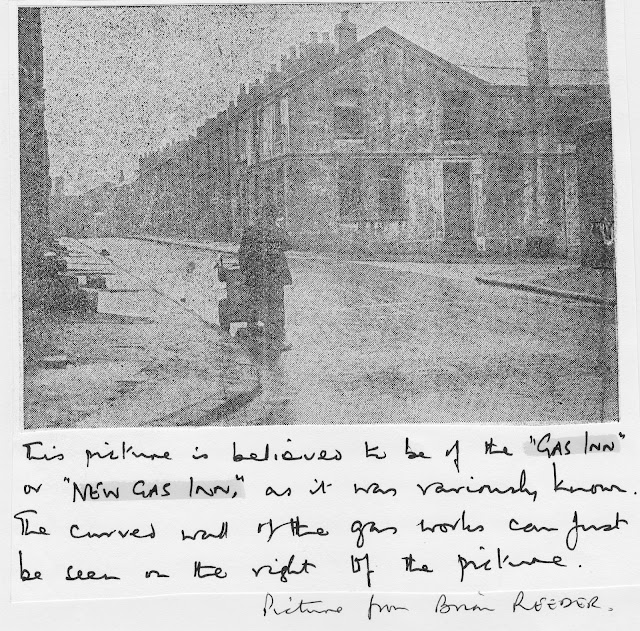 This picture is believed to be of the "GAS INN"
or "NEW GAS INN," as it was variously known.
The curved wall of the gas works can just
be seen on the right of the picture.
Picture from Brian REEDER.